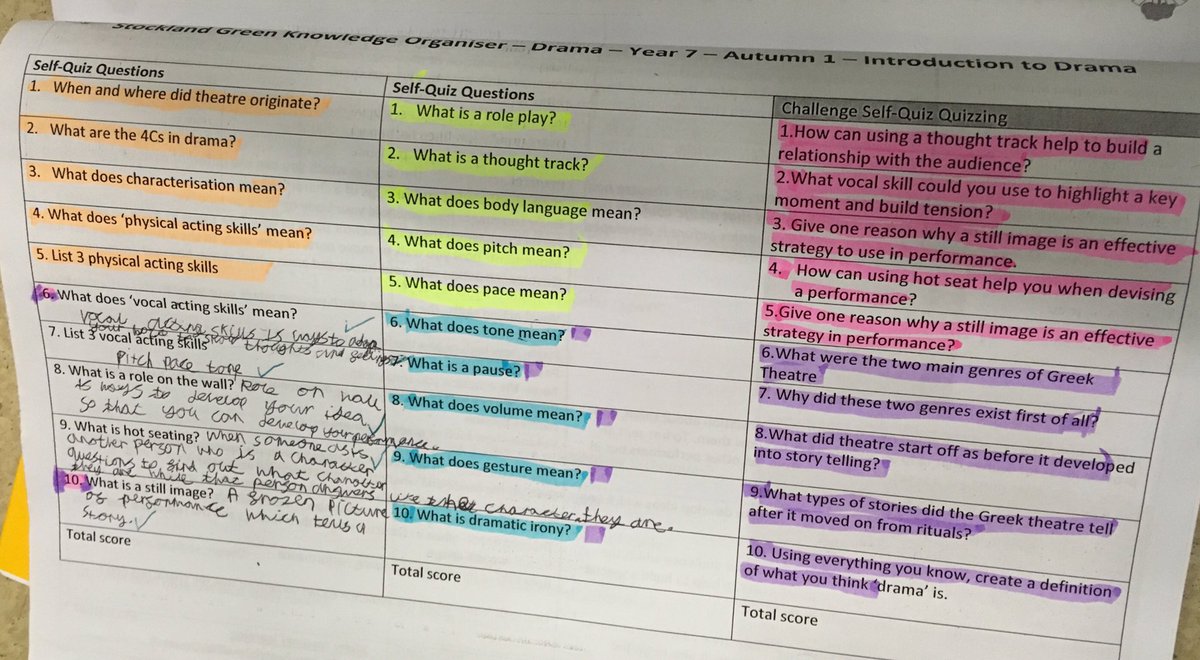 Stockland Green Knowledge Organiser – Drama – Year 7 – Autumn 1 – Introduction to Drama
Self-Quiz Questions
1. When and where did theatre originate?
2. What are the 4Cs in drama?
3. What does characterisation mean?
4. What does ‘physical acting skills’ mean?
5. List 3 physical acting skills
6. What does ‘vocal acting skills’ mean?
Vocal acting skills is ways to
your thoughts and
7. List 3 vocal acting skills
Pitch Pace tone
8. What is a role on the wall? Role on wall
is ways to develop your idea
so that you can develop your performance.
9. What is hot seating? When someone asks
another person who is a character
questions to find out what character
they are while that person answers like the character they are.
10. What is a still image? A frozen picture
of performance which tells a
story.
Total score
Self-Quiz Questions
1. What is a role play?
2. What is a thought track?
3. What does body language mean?
4. What does pitch mean?
5. What does pace mean?
6. What does tone mean?
7. What is a pause?
8. What does volume mean?
9. What does gesture mean?
10. What is dramatic irony?
Total score
Challenge Self-Quiz Quizzing
1.How can using a thought track help to build a
relationship with the audience?
2.What vocal skill could you use to highlight a key
moment and build tension?
3. Give one reason why a still image is an effective
strategy to use in performance.
4. How can using hot seat help you when devising
a performance?
5.Give one reason why a still image is an effective
strategy in performance?
6.What were the two main genres of Greek
Theatre
7. Why did these two genres exist first of all?
8.What did theatre start off as before it developed
into story telling?
9.What types of stories did the Greek theatre tell
after it moved on from rituals?
10. Using everything you know, create a definition
of what you think ‘drama’ is.
Total score